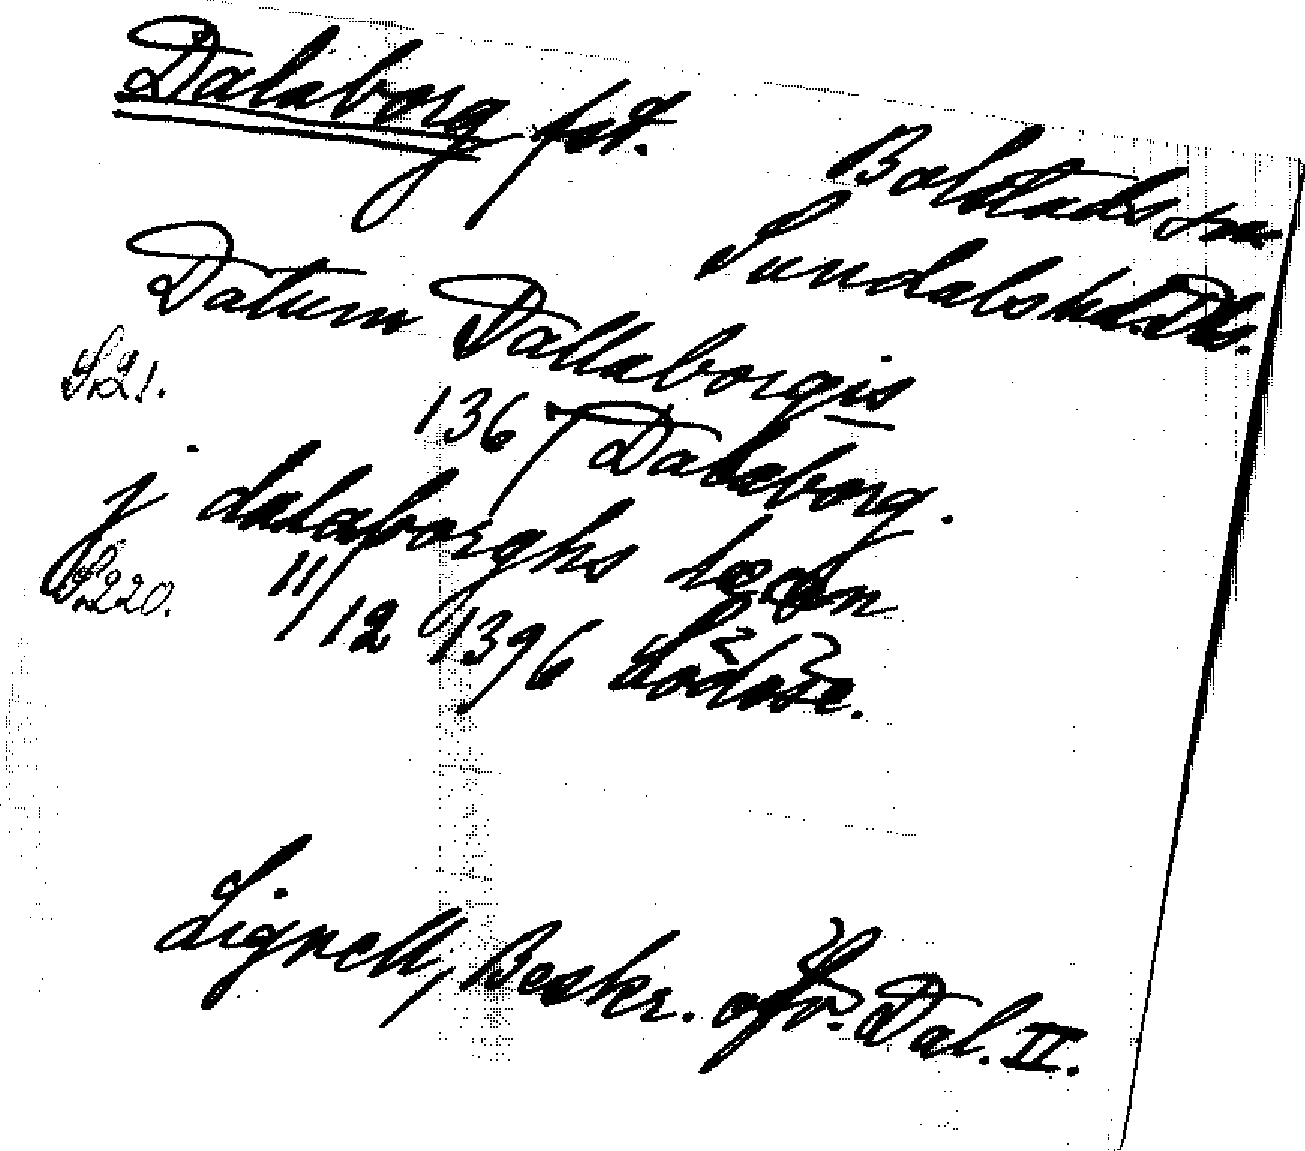 Dalaborg fst.
Bolstads sn
Sundals hd. Dls.
Datum Dallaborgis
S. 21.
1367 Daleborg.
j dalaborghs læen
S. 220.
11/12 1396 Lödöse.
Lignell, Beskr. öfr. Dal. II.